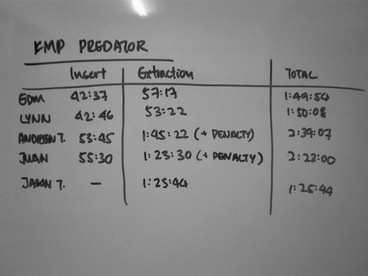 KMP PREDATOR
Insert Extraction TOTAL
EDM 42:37 57:17 1:49:54
LYNN 42:46 53:22 1:50:08
ANDREW T. 53:45 1:45:22 (+ PENALTY) 2:39:07
JUAN 55:30 1:23:30 (+ PENALTY) 2:23:00
JASON T. — 1:25:44 1:25:44